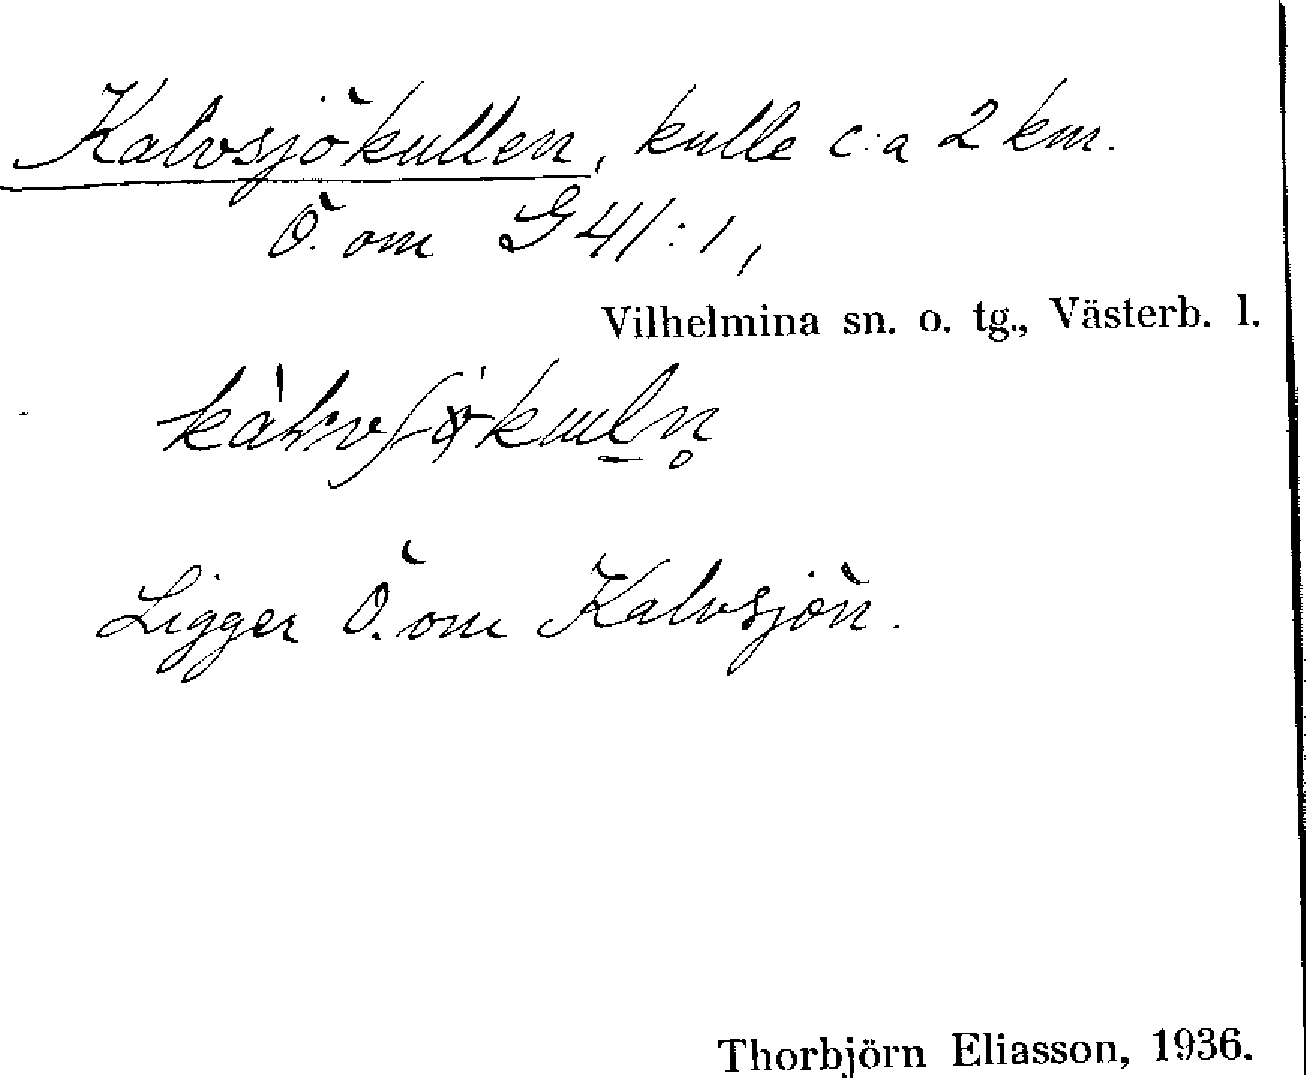 Kalvsjökullen, kulle c:a 2 km.
Ö. om G 41:1,
Vilhelmina sn. o. tg., Västerb. l.
Ligger Ö. om Kalvsjön.
Thorbjörn Eliasson, 1936.